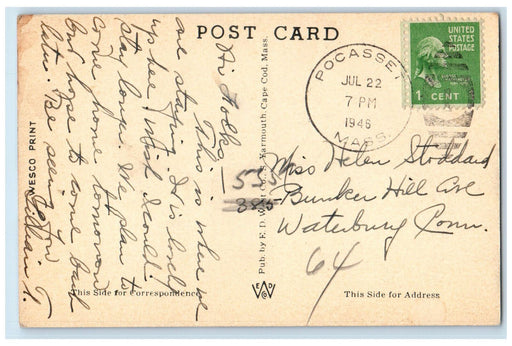 POST CARD
UNITED STATES POSTAGE
1 CENT
POCASSET
JUL 22
7 PM
1946
MASS.
Hi Folks—
This is where we
are staying. It's lovely
up here, wish I could
stay longer. We plan to
come home tomorrow
but hope to come back
later. Be seeing you
Lillian T.
Miss Helen Stoddard
535
385
Bunker Hill Ave
Waterbury Conn.
64
WESCO PRINT
Pub. by E. D. West Co., So. Yarmouth, Cape Cod, Mass.
This Side for Correspondence
This Side for Address